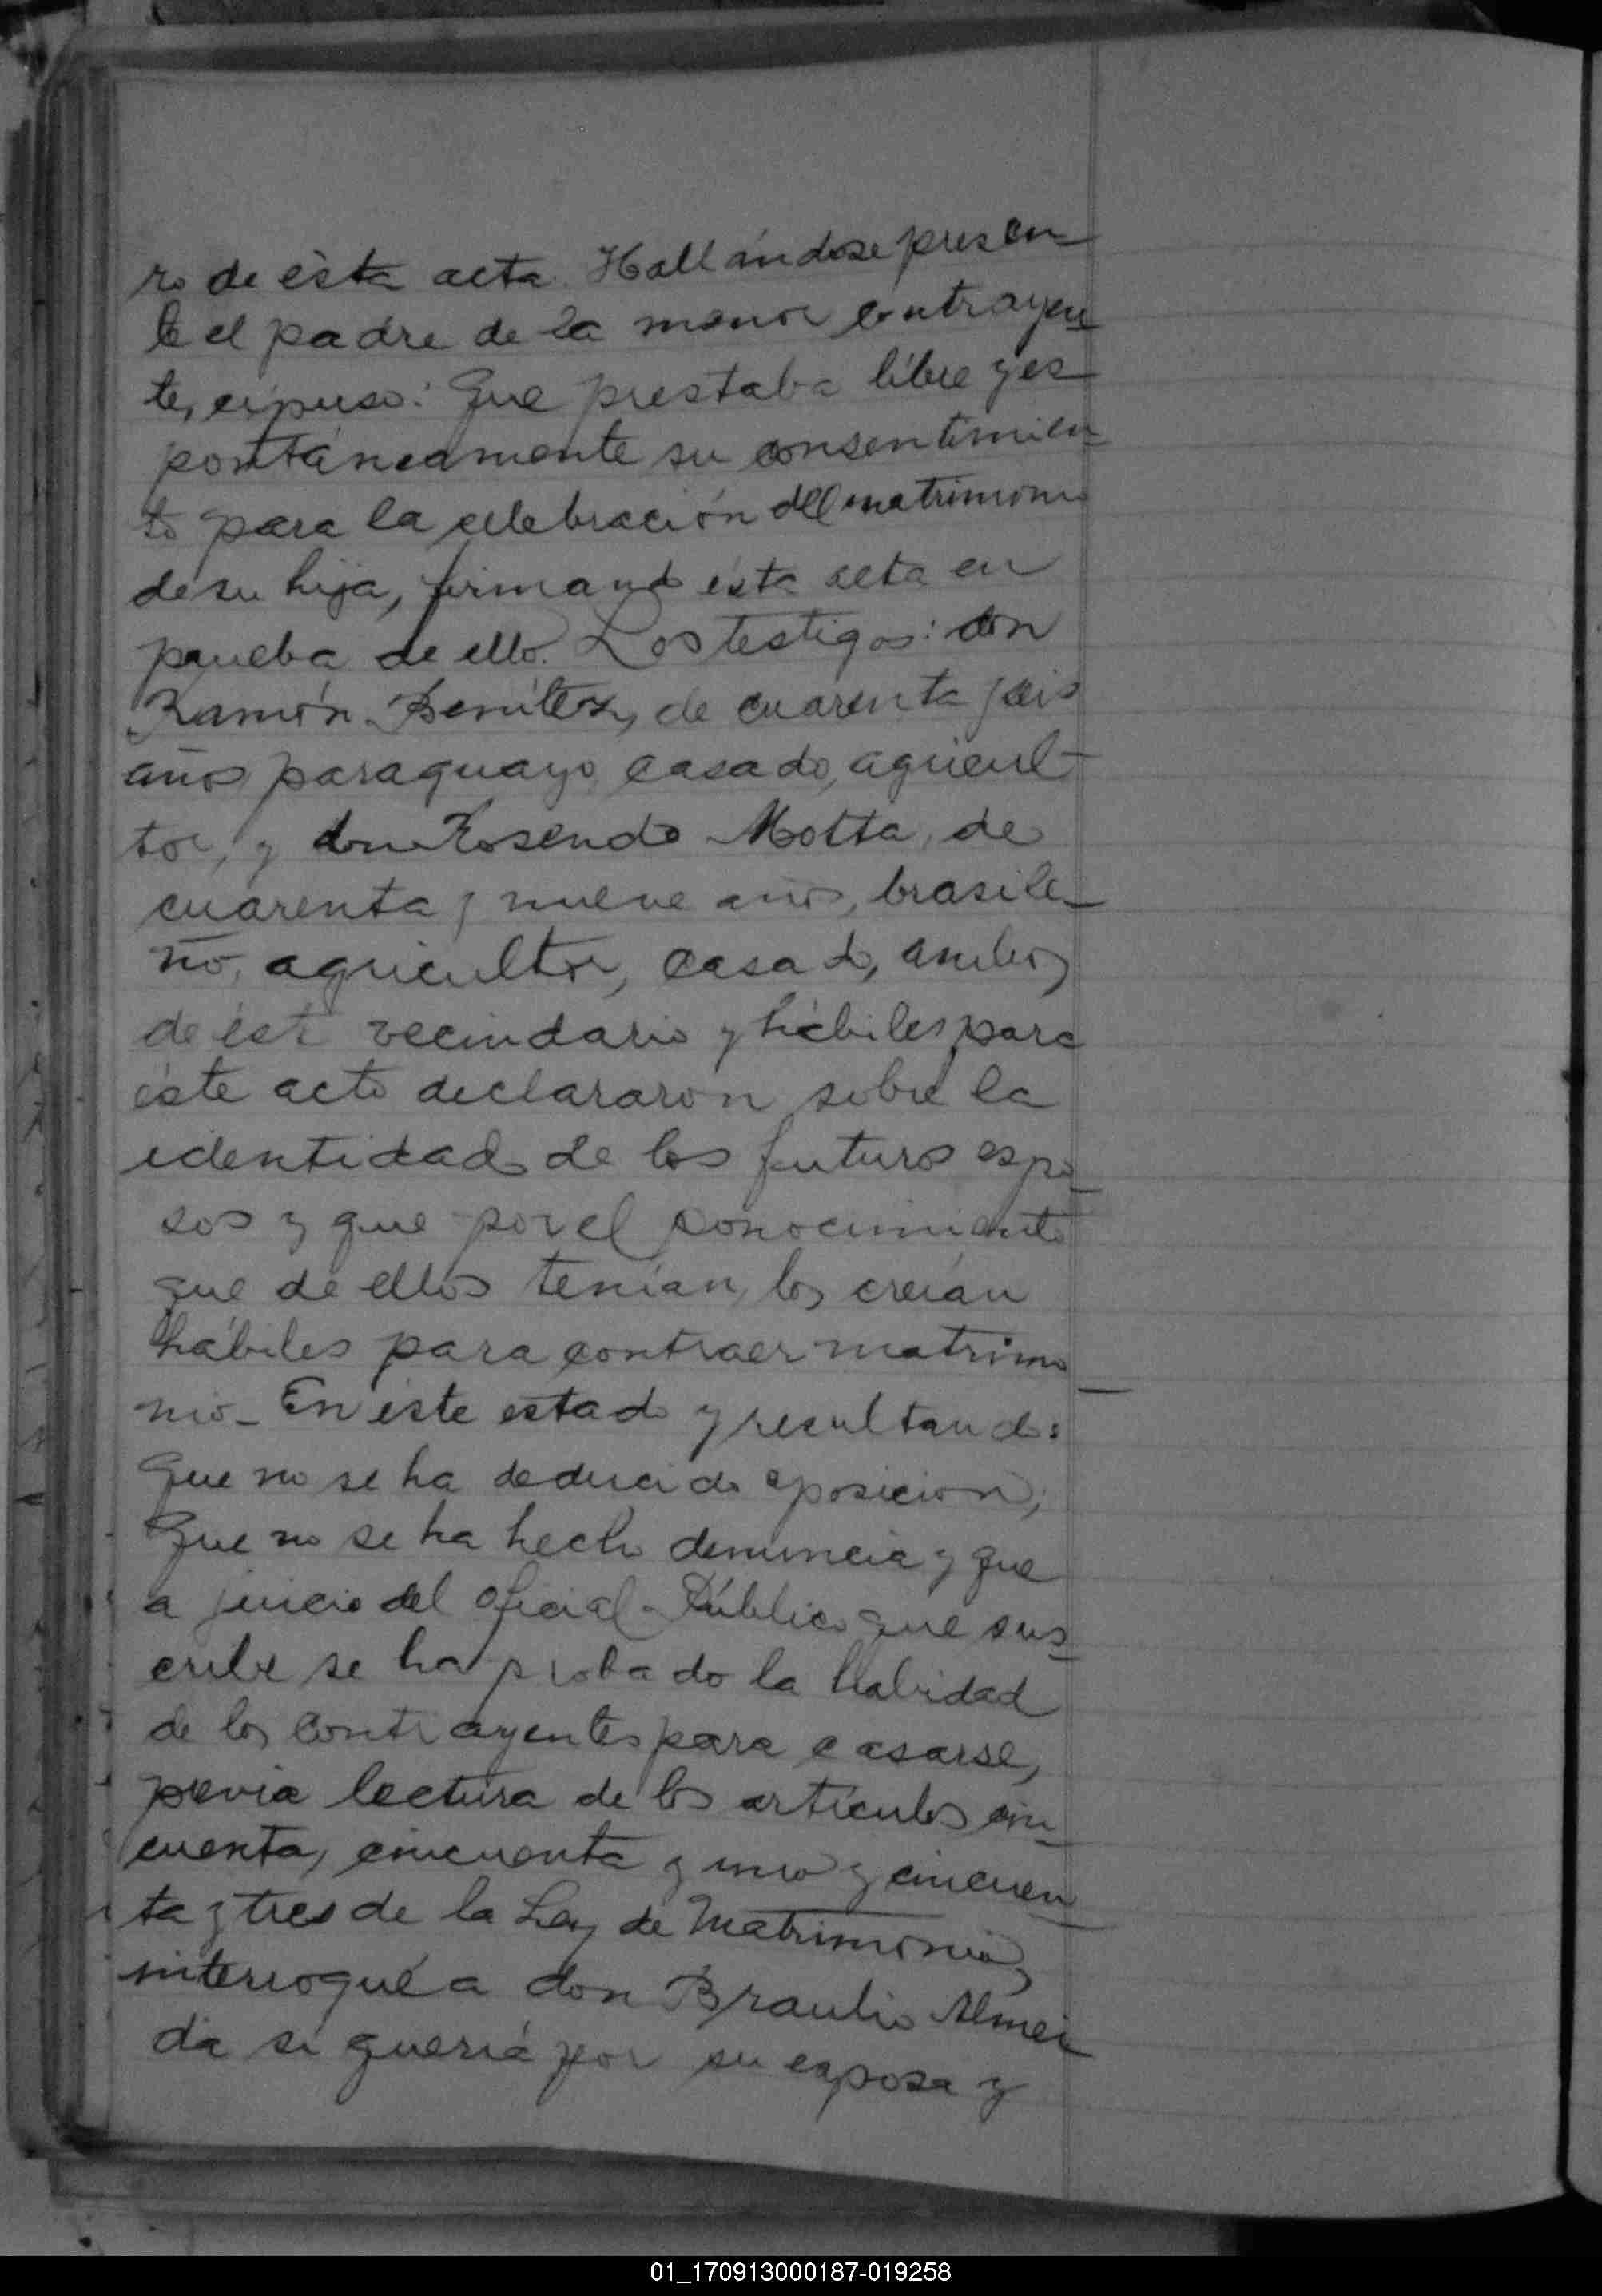 ro de ésta acta. Hallándose presen-
te el padre de la menor contrayen-
te, expuso: Que prestaba libre y es-
pontáneamente su consentimien-
to para la celebración del matrimonio
de su hija, firmando ésta acta en
prueba de ello. Los testigos: don
Ramón Benítez, de cuarenta y seis
años, paraguayo, casado, agricul-
tor, y don Rosendo Motta, de
cuarenta y nueve años, brasile-
ño, agricultor, casado, ambos
de éste vecindario y hábiles para
éste acto declararon sobre la
identidad de los futuros espo-
sos y que por el conocimiento
que de ellos tenían, los creían
hábiles para contraer matrimo-
nio- En éste estado y resultando:
Que no se ha deducido oposición;
Que no se ha hecho denuncia y que
a juicio del oficial Público que sus-
cribe se ha probado la habidad
de los contrayentes para casarse,
previa lectura de los artículos cin-
cuenta, cincuenta y uno y cincuen-
ta y tres de la Ley de Matrimonio,
interrogué a don Braulio Almei-
da si quería por su esposa y
01_170913000187-019258